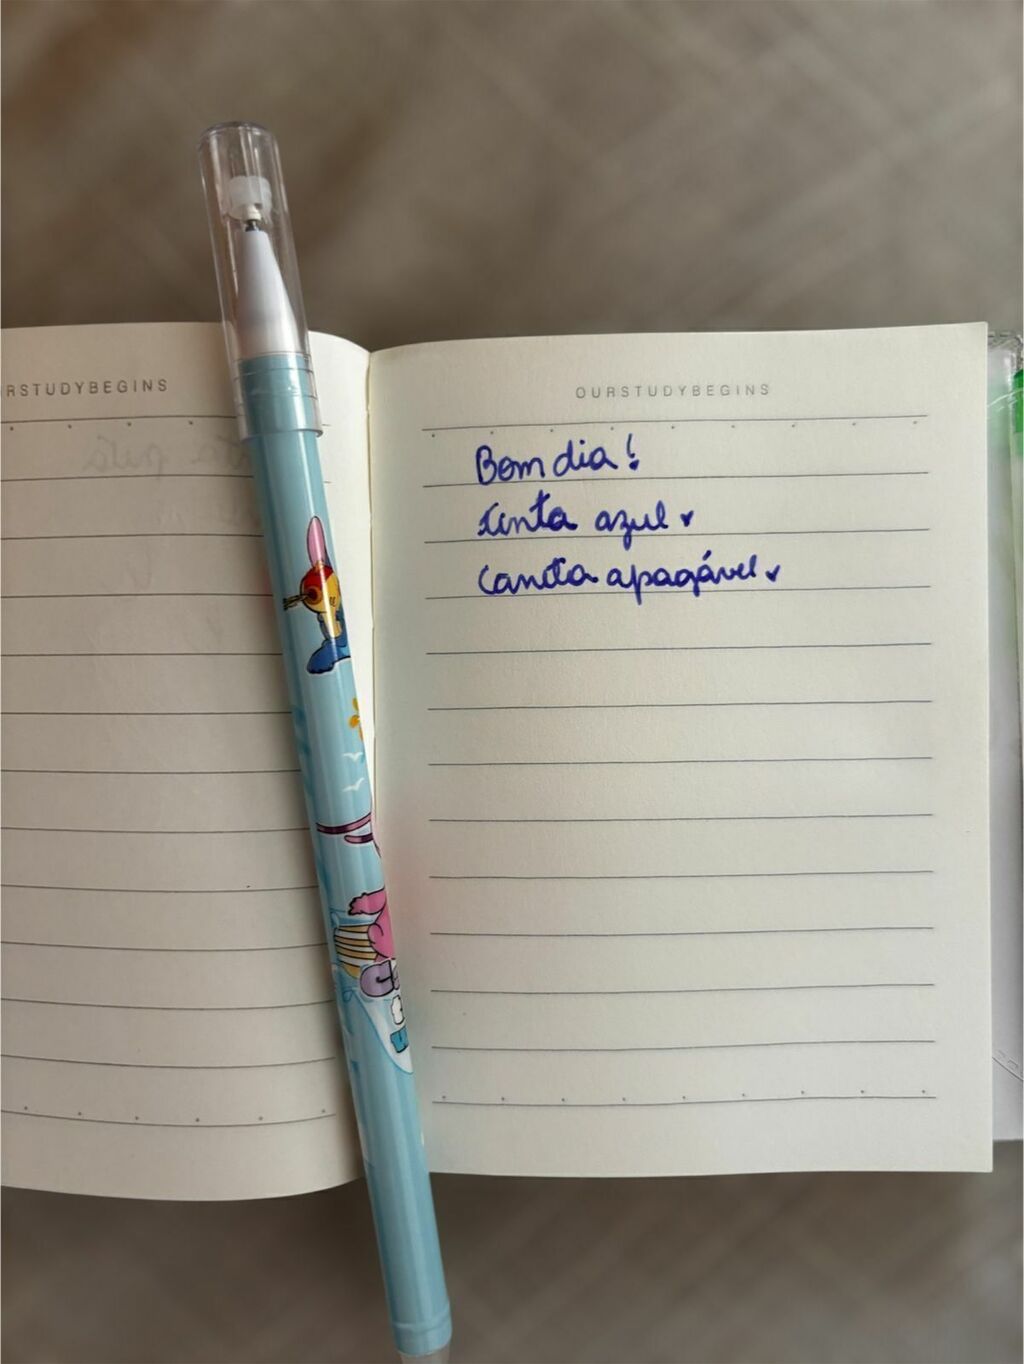 RSTUDYBEGINS
OURSTUDYBEGINS
Bom dia!
tinta azul
Caneta apagável